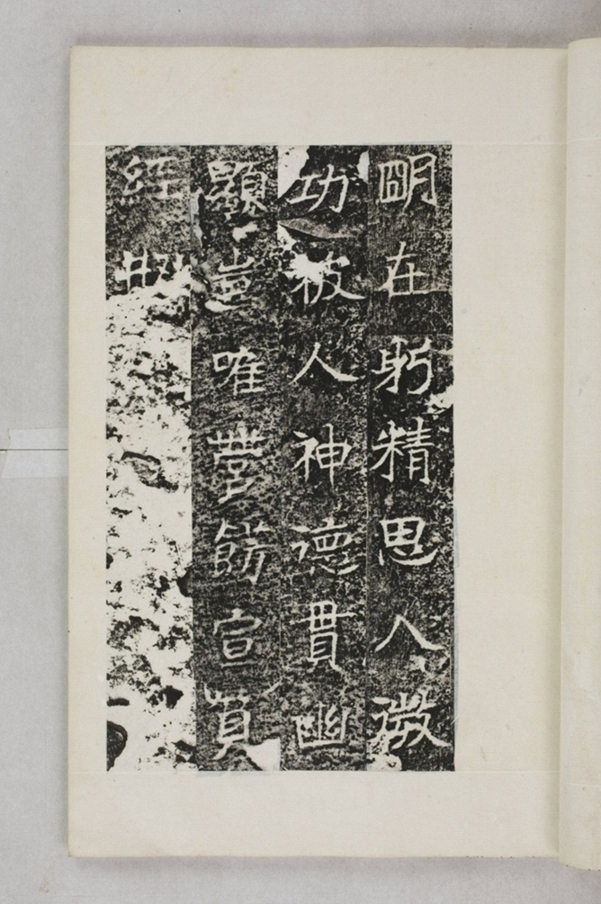 朙在躬精思入微
功被人神德貫幽
顯豈唯飾宣
經